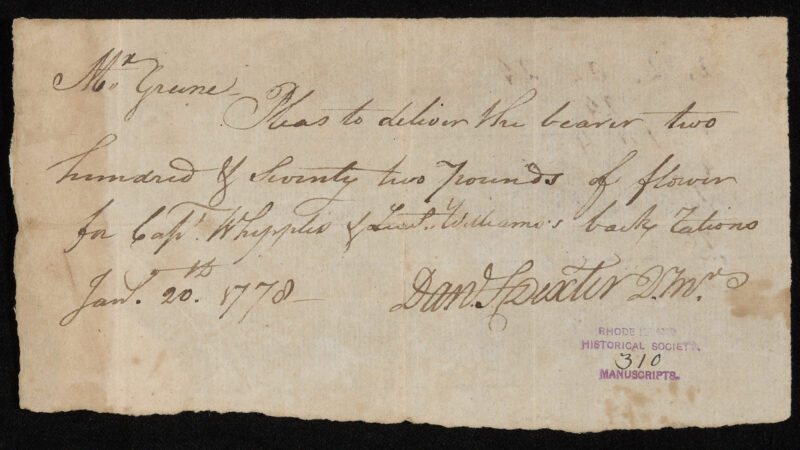 Mr Greene
Pleas to deliver the bearer two
hundred & Seventy two pounds of flower
for Capt. Whipples & Lieut. Williams's back Rations
Jany. 20th. 1778 Danl. S Dexter Q.Mr.
RHODE ISLAND
HISTORICAL SOCIETY.
310
MANUSCRIPTS.